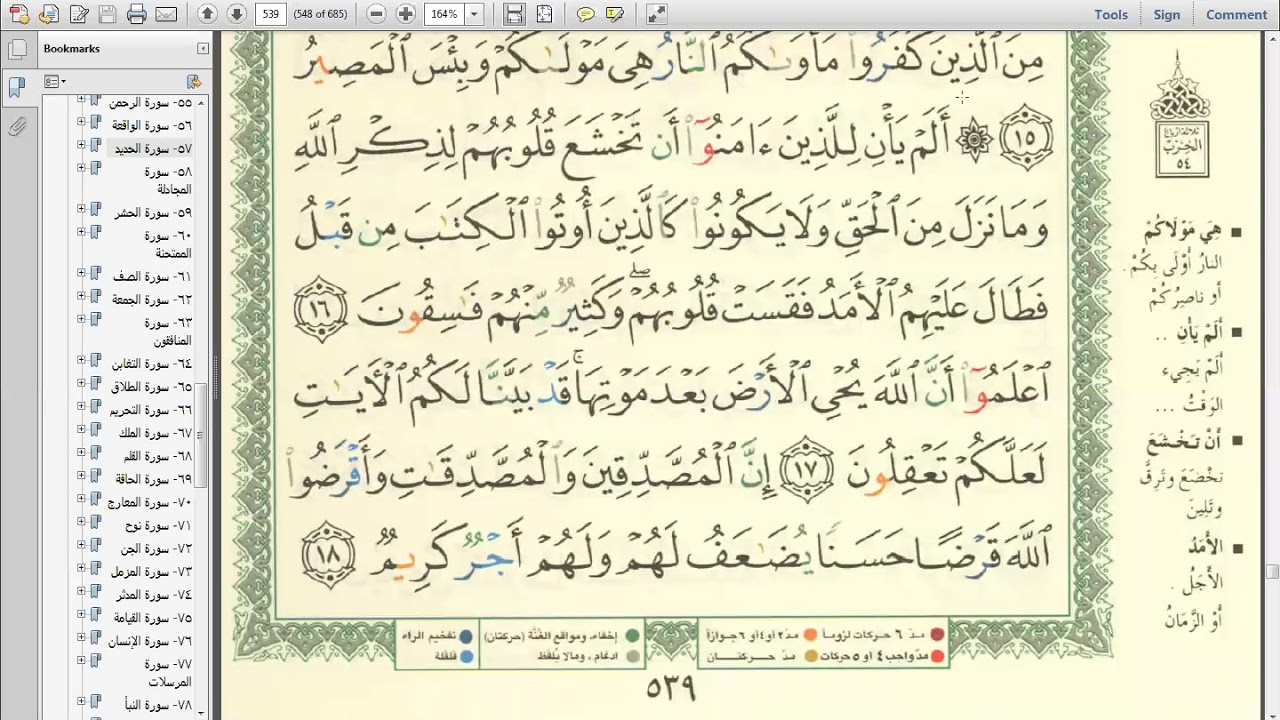 539 (548 of 685) 164% Tools Sign Comment
Bookmarks
٥٥- سورة الرحمن
٥٦- سورة الواقعة
٥٧- سورة الحديد
٥٨- سورة
المجادلة
٥٩- سورة الحشر
٦٠- سورة
الممتحنة
٦١- سورة الصف
٦٢- سورة الجمعة
٦٣- سورة
المنافقون
٦٤- سورة التغابن
٦٥- سورة الطلاق
٦٦- سورة التحريم
٦٧- سورة الملك
٦٨- سورة القلم
٦٩- سورة الحاقة
٧٠- سورة المعارج
٧١- سورة نوح
٧٢- سورة الجن
٧٣- سورة المزمل
٧٤- سورة المدثر
٧٥- سورة القيامة
٧٦- سورة الإنسان
٧٧- سورة
المرسلات
٧٨- سورة النبأ
مِنَ ٱلَّذِينَ كَفَرُوا۟ مَأْوَىٰكُمُ ٱلنَّارُ هِىَ مَوْلَىٰكُمْ وَبِئْسَ ٱلْمَصِيرُ
١٥ ۞ أَلَمْ يَأْنِ لِلَّذِينَ ءَامَنُوٓا۟ أَن تَخْشَعَ قُلُوبُهُمْ لِذِكْرِ ٱللَّهِ
وَمَا نَزَلَ مِنَ ٱلْحَقِّ وَلَا يَكُونُوا۟ كَٱلَّذِينَ أُوتُوا۟ ٱلْكِتَٰبَ مِن قَبْلُ
فَطَالَ عَلَيْهِمُ ٱلْأَمَدُ فَقَسَتْ قُلُوبُهُمْ ۖ وَكَثِيرٌ مِّنْهُمْ فَٰسِقُونَ ١٦
ٱعْلَمُوٓا۟ أَنَّ ٱللَّهَ يُحْىِ ٱلْأَرْضَ بَعْدَ مَوْتِهَا ۚ قَدْ بَيَّنَّا لَكُمُ ٱلْءَايَٰتِ
لَعَلَّكُمْ تَعْقِلُونَ ١٧ إِنَّ ٱلْمُصَّدِّقِينَ وَٱلْمُصَّدِّقَٰتِ وَأَقْرَضُوا۟
ٱللَّهَ قَرْضًا حَسَنًا يُضَٰعَفُ لَهُمْ وَلَهُمْ أَجْرٌ كَرِيمٌ ١٨
ثلاثة أرباع
الحزب
٥٤
هِيَ مَوْلَاكُمْ
النارُ أَوْلَى بِكُمْ.
أو ناصِرُكُمْ
أَلَمْ يَأْنِ ..
أَلَمْ يَجِيء
الوَقْتُ ...
أَنْ تَخْشَعَ
تَخْضَعَ وتَرِقَّ
وتَلِينَ
الأَمَدُ
الأَجَلُ .
أَوْ الزَّمَانُ
مدّ ٦ حركات لزوماً مدّ ٢ أو ٤ أو ٦ جوازاً
مدّ واجب ٤ أو ٥ حركات مدّ حركتان
إخفاء، ومواقع الغُنَّة (حركتان) تفخيم الراء
ادغام ، ومالا يُلفَظ قلقلة
٥٣٩